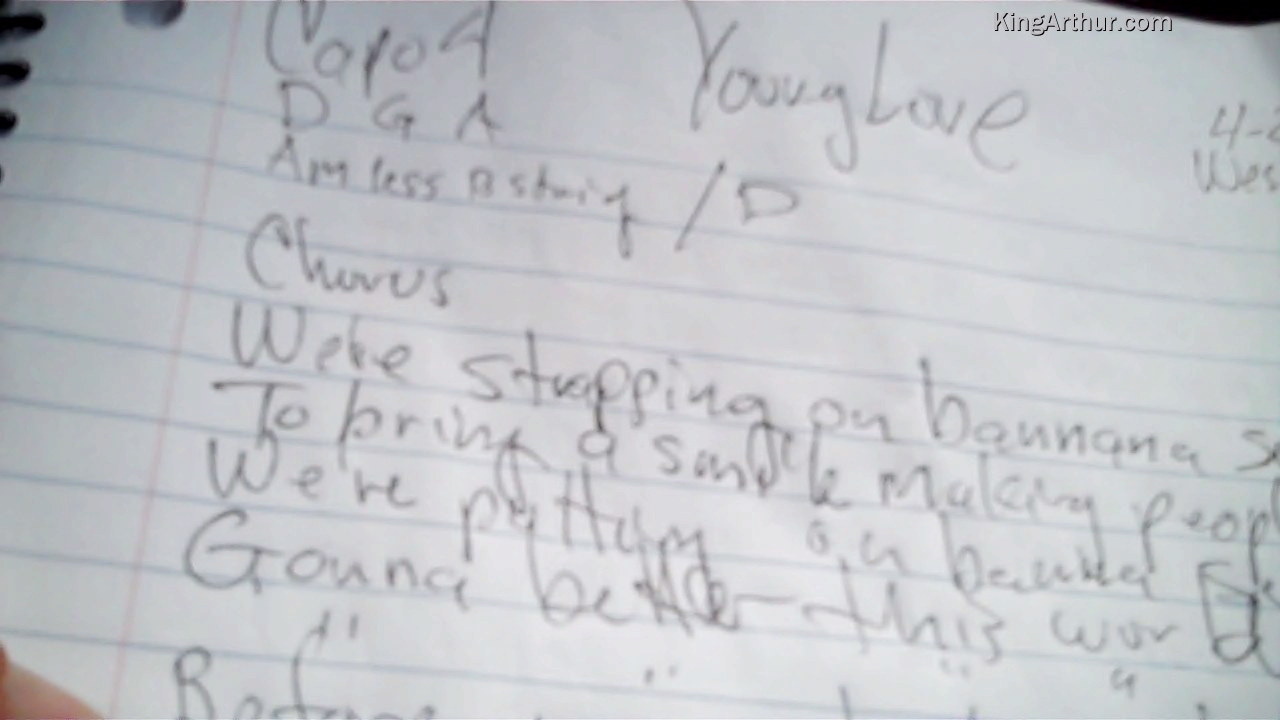 KingArthur.com
Capo 4 Young Love
D G A 4-
Am less B string / D Wes
Chorus
We're strapping on bannana s
To bring a smile making peop
We're putting on banna
Gonna better this world
" " "
Before